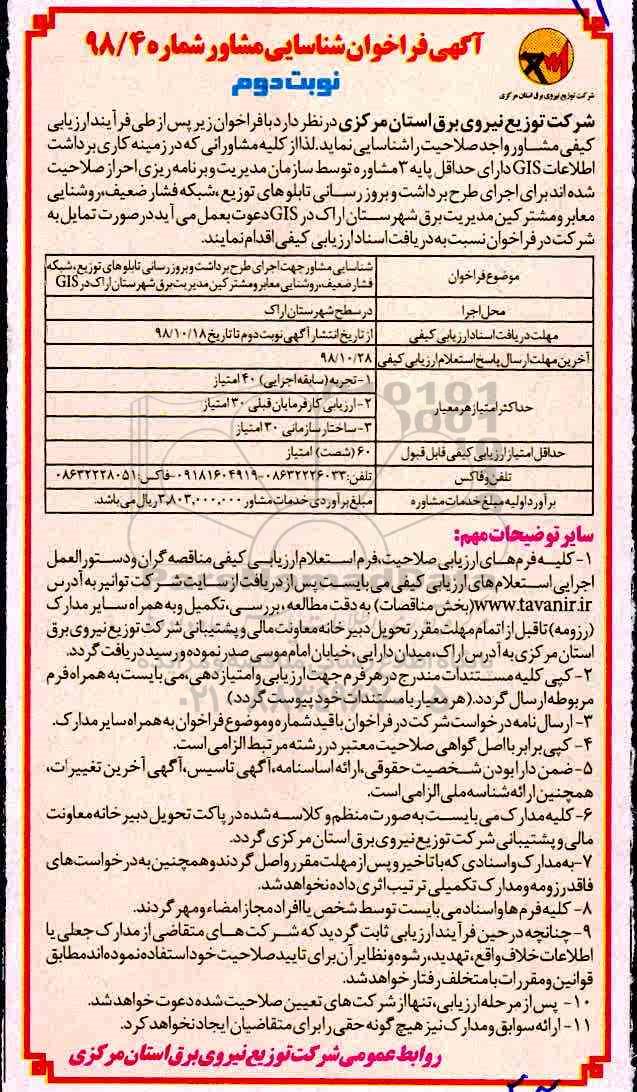 آگهی فراخوان شناسایی مشاور شماره ۹۸/۴
نوبت دوم
شرکت توزیع نیروی برق استان مرکزی
شرکت توزیع نیروی برق استان مرکزی در نظر دارد با فراخوان زیر پس از طی فرآیند ارزیابی
کیفی مشاور واجد صلاحیت را شناسایی نماید. لذا از کلیه مشاورانی که در زمینه کاری برداشت
اطلاعات GIS دارای حداقل پایه ۳ مشاوره توسط سازمان مدیریت و برنامه ریزی احراز صلاحیت
شده اند برای اجرای طرح برداشت و بروز رسانی تابلوهای توزیع، شبکه فشار ضعیف، روشنایی
معابر و مشترکین مدیریت برق شهرستان اراک در GIS دعوت بعمل می آید در صورت تمایل به
شرکت در فراخوان نسبت به دریافت اسناد ارزیابی کیفی اقدام نمایند.
موضوع فراخوان
شناسایی مشاور جهت اجرای طرح برداشت و بروز رسانی تابلوهای توزیع، شبکه
فشار ضعیف، روشنایی معابر و مشترکین مدیریت برق شهرستان اراک در GIS
محل اجرا
در سطح شهرستان اراک
مهلت دریافت اسناد ارزیابی کیفی
از تاریخ انتشار آگهی نوبت دوم تا تاریخ ۹۸/۱۰/۱۸
آخرین مهلت ارسال پاسخ استعلام ارزیابی کیفی
۹۸/۱۰/۲۸
حداکثر امتیاز هر معیار
۱- تجربه (سابقه اجرایی) ۴۰ امتیاز
۲- ارزیابی کارفرمایان قبلی ۳۰ امتیاز
۳- ساختار سازمانی ۳۰ امتیاز
حداقل امتیاز ارزیابی کیفی قابل قبول
۶۰ (شصت) امتیاز
تلفن و فاکس
تلفن: ۰۸۶۳۲۲۲۶۰۳۳-۰۹۱۸۱۶۰۴۹۱۹- فاکس: ۰۸۶۳۲۲۲۸۰۵۱
برآورد اولیه مبلغ خدمات مشاوره
مبلغ برآوردی خدمات مشاور ۲,۸۰۳,۰۰۰,۰۰۰ ریال می باشد.
سایر توضیحات مهم:
۱- کلیه فرم های ارزیابی صلاحیت، فرم استعلام ارزیابی کیفی مناقصه گران و دستورالعمل
اجرایی استعلام های ارزیابی کیفی می بایست پس از دریافت از سایت شرکت توانیر به آدرس
www.tavanir.ir (بخش مناقصات) به دقت مطالعه، بررسی، تکمیل و به همراه سایر مدارک
(رزومه) تا قبل از اتمام مهلت مقرر تحویل دبیرخانه معاونت مالی و پشتیبانی شرکت توزیع نیروی برق
استان مرکزی به آدرس اراک، میدان دارایی، خیابان امام موسی صدر نموده و رسید دریافت گردد.
۲- کپی کلیه مستندات مندرج در هر فرم جهت ارزیابی و امتیازدهی، می بایست به همراه فرم
مربوطه ارسال گردد. (هر معیار با مستندات خود پیوست گردد)
۳- ارسال نامه درخواست شرکت در فراخوان با قید شماره و موضوع فراخوان به همراه سایر مدارک.
۴- کپی برابر با اصل گواهی صلاحیت معتبر در رشته مرتبط الزامی است.
۵- ضمن دارا بودن شخصیت حقوقی، ارائه اساسنامه، آگهی تاسیس، آگهی آخرین تغییرات،
همچنین ارائه شناسه ملی الزامی است.
۶- کلیه مدارک می بایست به صورت منظم و کلاسه شده در پاکت تحویل دبیرخانه معاونت
مالی و پشتیبانی شرکت توزیع نیروی برق استان مرکزی گردد.
۷- به مدارک و اسنادی که با تاخیر و پس از مهلت مقرر واصل گردند و همچنین به درخواست های
فاقد رزومه و مدارک تکمیلی ترتیب اثری داده نخواهد شد.
۸- کلیه فرم ها و اسناد می بایست توسط شخص یا افراد مجاز امضاء و مهر گردند.
۹- چنانچه در حین فرآیند ارزیابی ثابت گردید که شرکت های متقاضی از مدارک جعلی یا
اطلاعات خلاف واقع، تهدید، رشوه و نظایر آن برای تایید صلاحیت خود استفاده نموده اند مطابق
قوانین و مقررات با متخلف رفتار خواهد شد.
۱۰- پس از مرحله ارزیابی، تنها از شرکت های تعیین صلاحیت شده دعوت خواهد شد.
۱۱- ارائه سوابق و مدارک نیز هیچ گونه حقی را برای متقاضیان ایجاد نخواهد کرد.
روابط عمومی شرکت توزیع نیروی برق استان مرکزی